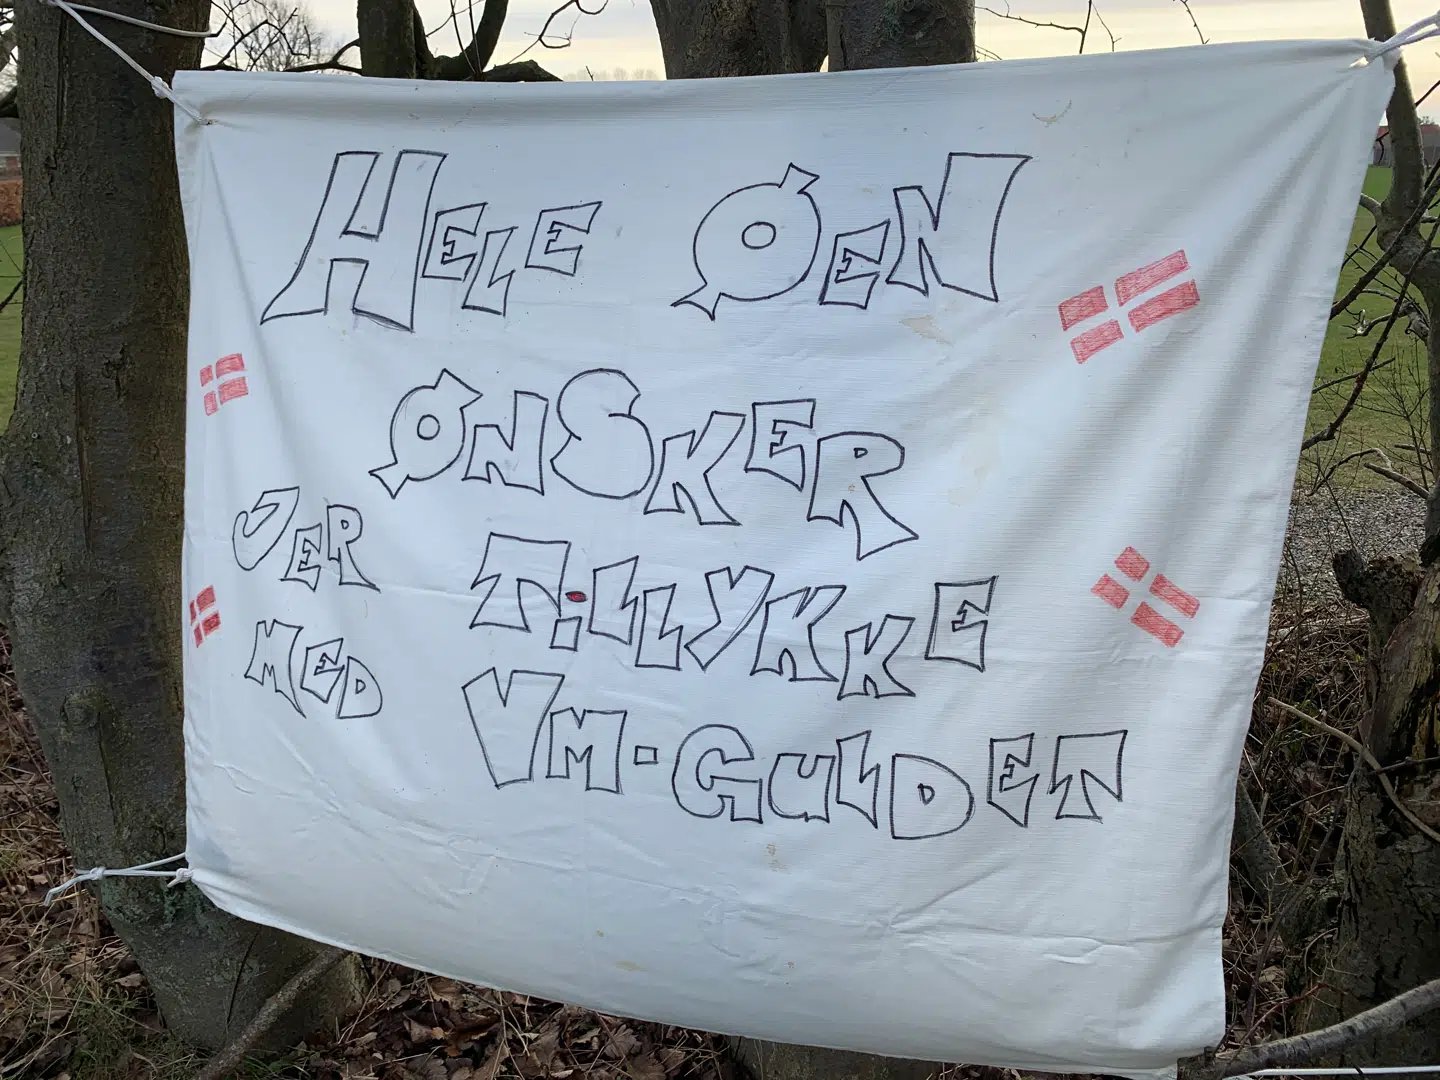 HELE ØEN
ØNSKER
JER
TILLYKKE
MED
VM-GULDET